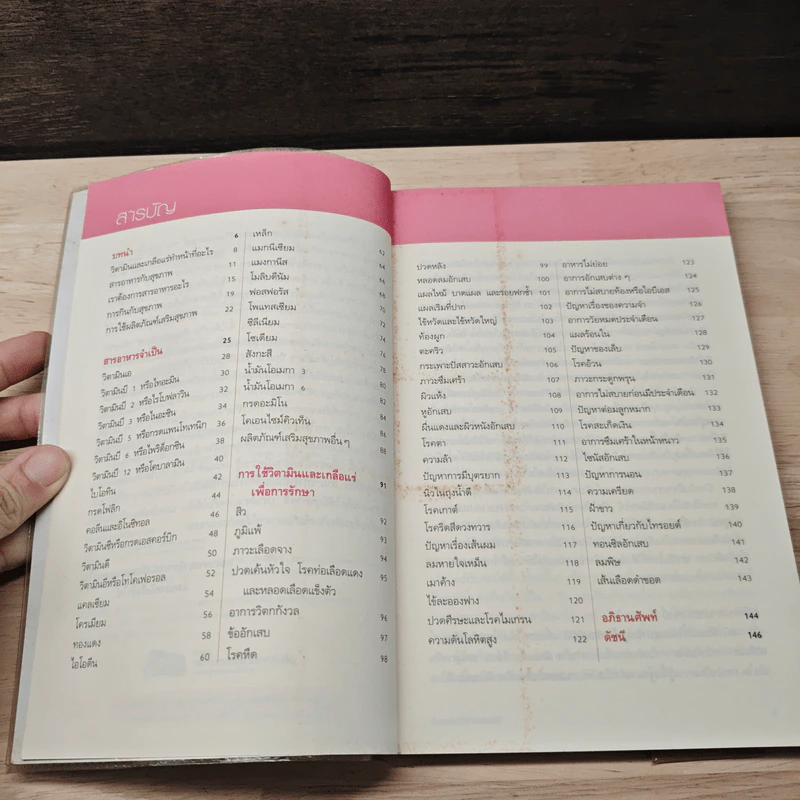 สารบัญ
บทนำ 6
วิตามินและเกลือแร่ทำหน้าที่อะไร 8
สารอาหารกับสุขภาพ 11
เราต้องการสารอาหารอะไร 15
การกินกับสุขภาพ 19
การใช้ผลิตภัณฑ์เสริมสุขภาพ 22
สารอาหารจำเป็น 25
วิตามินเอ 28
วิตามินบี 1 หรือไทอะมิน 30
วิตามินบี 2 หรือไรโบฟลาวิน 32
วิตามินบี 3 หรือไนอะซิน 34
วิตามินบี 5 หรือกรดแพนโทเทนิก 36
วิตามินบี 6 หรือไพริด็อกซิน 38
วิตามินบี 12 หรือโคบาลามิน 40
ไบโอทิน 42
กรดโฟลิก 44
คอลีนและอิโนซิทอล 46
วิตามินซีหรือกรดเอสคอร์บิก 48
วิตามินดี 50
วิตามินอีหรือโทโคเฟอรอล 52
แคลเซียม 54
โครเมียม 56
ทองแดง 58
ไอโอดีน 60
เหล็ก 62
แมกนีเซียม
แมงกานีส
โมลิบดีนัม
ฟอสฟอรัส
โพแทสเซียม
ซิลีเนียม
โซเดียม
สังกะสี
น้ำมันโอเมกา 3 80
น้ำมันโอเมกา 6 82
กรดอะมิโน 84
โคเอนไซม์คิวเท็น 86
ผลิตภัณฑ์เสริมสุขภาพอื่นๆ 88
การใช้วิตามินและเกลือแร่
เพื่อการรักษา 91
สิว 92
ภูมิแพ้ 93
ภาวะเลือดจาง 94
ปวดเค้นหัวใจ โรคท่อเลือดแดง
และหลอดเลือดแข็งตัว 95
อาการวิตกกังวล 96
ข้ออักเสบ 97
โรคหืด 98
ปวดหลัง 99
หลอดลมอักเสบ 100
แผลไหม้ บาดแผล และรอยฟกช้ำ 101
แผลเริมที่ปาก 102
ไข้หวัดและไข้หวัดใหญ่ 103
ท้องผูก 104
ตะคริว 105
กระเพาะปัสสาวะอักเสบ 106
ภาวะซึมเศร้า 107
ผิวแห้ง 108
หูอักเสบ 109
ผื่นแดงและผิวหนังอักเสบ 110
โรคตา 111
ความล้า 112
ปัญหาการมีบุตรยาก 113
นิ่วในถุงน้ำดี 114
โรคเกาต์ 115
โรคริดสีดวงทวาร 116
ปัญหาเรื่องเส้นผม 117
ลมหายใจเหม็น 118
เมาค้าง 119
ไข้ละอองฟาง 120
ปวดศีรษะและโรคไมเกรน 121
ความดันโลหิตสูง 122
อาหารไม่ย่อย 123
อาการอักเสบต่าง ๆ 124
อาการไม่สบายท้องหรือไอบีเอส 125
ปัญหาเรื่องของความจำ 126
อาการวัยหมดประจำเดือน 127
แผลร้อนใน 128
ปัญหาของเล็บ 129
โรคอ้วน 130
ภาวะกระดูกพรุน 131
อาการไม่สบายก่อนมีประจำเดือน 132
ปัญหาต่อมลูกหมาก 133
โรคสะเก็ดเงิน 134
อาการซึมเศร้าในหน้าหนาว 135
ไซนัสอักเสบ 136
ปัญหาการนอน 137
ความเครียด 138
ฝ้าขาว 139
ปัญหาเกี่ยวกับไทรอยด์ 140
ทอนซิลอักเสบ 141
ลมพิษ 142
เส้นเลือดดำขอด 143
อภิธานศัพท์ 144
ดัชนี 146